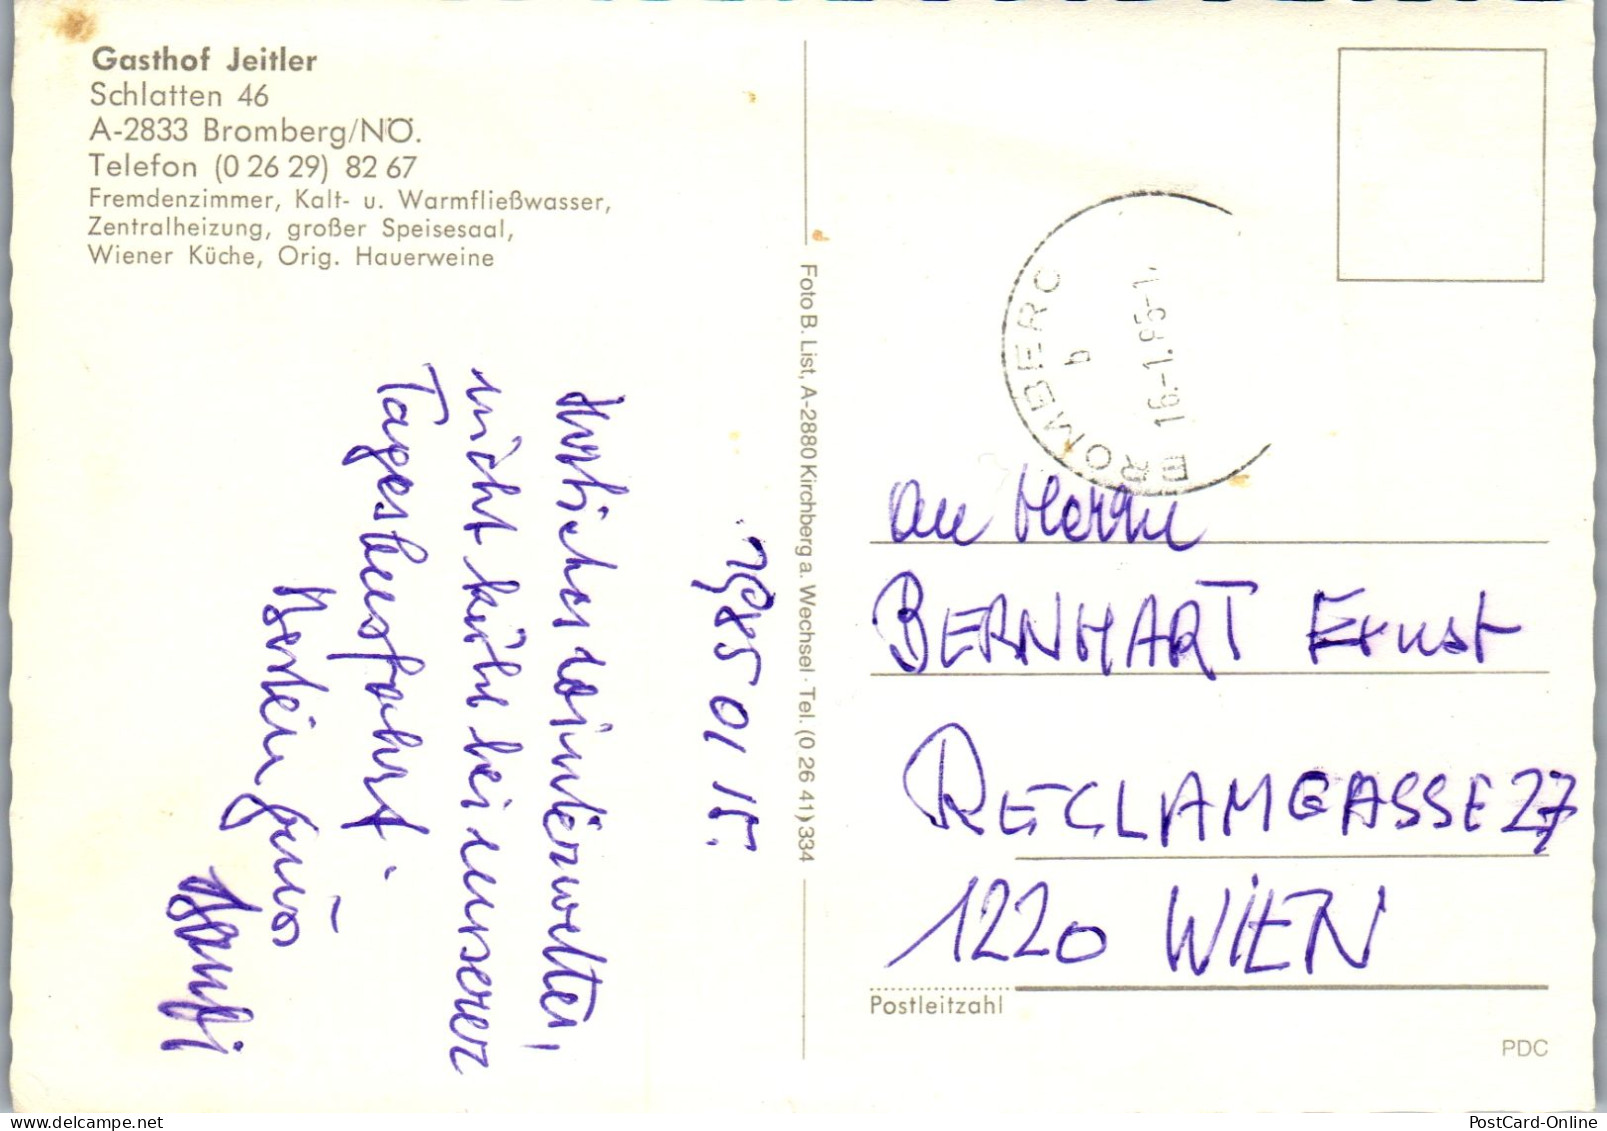 Gasthof Jeitler
Schlatten 46
A-2833 Bromberg/NÖ.
Telefon (0 26 29) 82 67
Fremdenzimmer, Kalt- u. Warmfließwasser,
Zentralheizung, großer Speisesaal,
Wiener Küche, Orig. Hauerweine
1985 01 15.
Herrliches Winterwetter,
nicht kühl bei unserer
Tagesbusfahrt.
Foto B. List, A-2880 Kirchberg a. Wechsel · Tel. (0 26 41) 334
BROMBERG
b
16-1.85-1
an Herrn
BERNHART Ernst
RECLAMGASSE 27
1220 WIEN
Postleitzahl
PDC
PostCard-Online